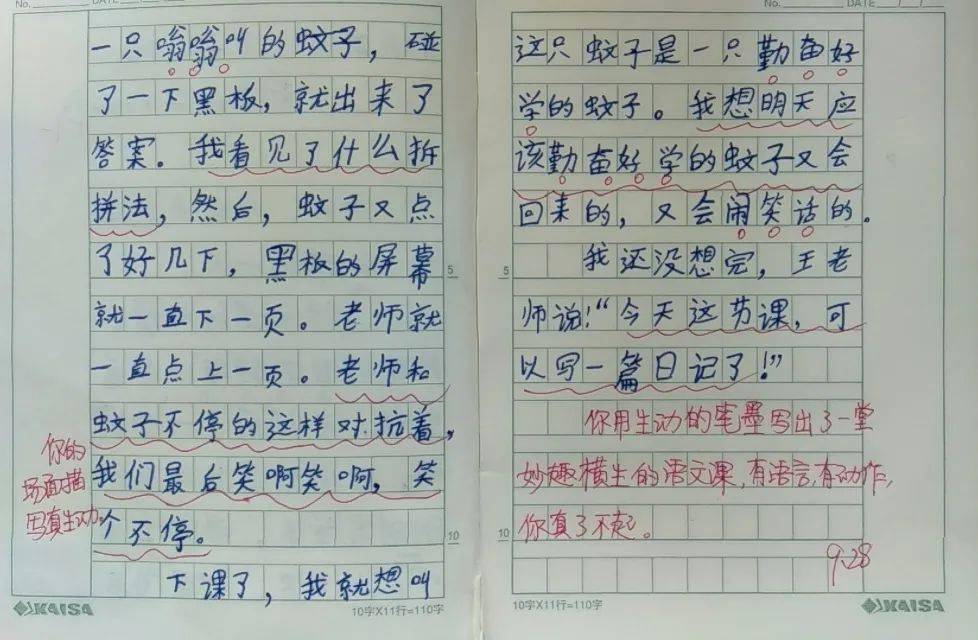 No.
DATE / /
一只嗡嗡叫的蚊子，碰
了一下黑板，就出来了
答案。我看见了什么拆
拼法，然后，蚊子又点
了好几下，黑板的屏幕
5
就一直下一页。老师就
一直点上一页。老师和
蚊子不停的这样对抗着，
我们最后笑啊笑啊，笑
个不停。
10
下课了，我就想叫
你的
场面描
写真生动。
KAISA
10字X11行=110字
No.
DATE / /
这只蚊子是一只勤奋好
学的蚊子。我想明天应
该勤奋好学的蚊子又会
回来的，又会闹笑话的。
我还没想完，王老
5
师说！“今天这节课，可
以写一篇日记了！”
你用生动的笔墨写出了一堂
妙趣横生的语文课，有语言，有动作，
你真了不起。
10
9.28
10字X11行=110字
KAISA